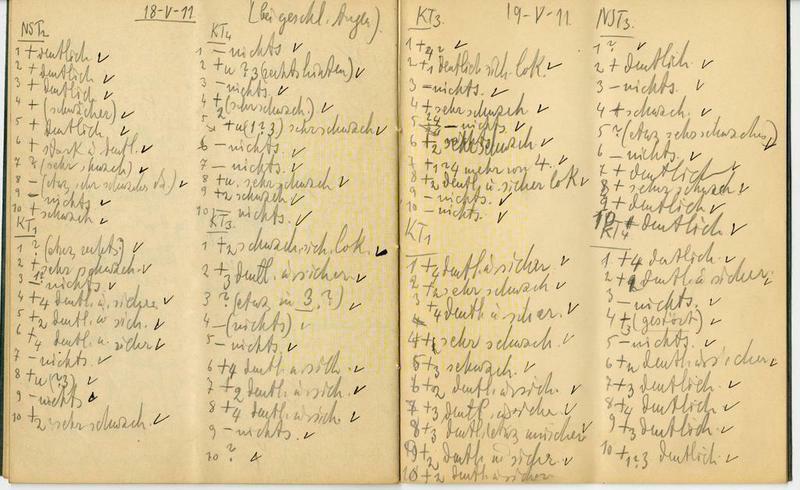 18-V-11
NST2
1 + deutlich ✓
2 + deutlich ✓
3 + deutlich ✓
4 + (schwächer) ✓
5 + deutlich ✓
6 + stark u. deutl. ✓
7 ? (sehr schwach) ✓
8 – (etw. sehr schwaches da) ✓
9 – nichts ✓
10 + schwach ✓
KT1
1 ? (etwas rechts) ✓
2 + sehr schwach ✓
3 – nichts ✓
4 + 4 deutl. u. sicher ✓
5 + 2 deutl. u. sich. ✓
6 + 4 deutl. u. sicher ✓
7 – nichts. ✓
8 + u (? 3) ✓
9 – nichts
10 + 2 sehr schwach. ✓
(bei geschl. Augen).
KT4
1 – nichts ✓
2 + u ? 3 (rechts hinten) ✓
3 – nichts. ✓
4 + (sehr schwach.) ✓
5 + u (1 ? 3) sehr schwach ✓
6 – nichts. ✓
7 – nichts. ✓
8 + u. sehr schwach ✓
9 + 2 schwach ✓
10 – nichts. ✓
KT3
1 + 2 schwach, sich. lok. ✓
2 + 3 deutl. u. sicher. ✓
3 ? (etwas in 3. ?) ✓
4 – (nichts) ✓
5 – nichts. ✓
6 + 4 deutl. u. sich. ✓
7 + 2 deutl. u. sich. ✓
8 + 4 deutl. u. sich ✓
9 – nichts. ✓
10 ?
19-V-11
KT3.
1 + 4 ? ✓
2 + 1 deutlich sich lok. ✓
3 – nichts. ✓
4 + sehr schwach ✓
5 – nichts. ✓
6 + 2 sehr schwach
7 + 1 ? 4 mehr von 4. ✓
8 + 2 deutl. u. sicher lok ✓
9 – nichts. ✓
10 – nichts. ✓
KT1
1 + 4 deutl. u. sicher. ✓
2 + 2 sehr schwach ✓
3 + 4 deutl. u. sicher. ✓
4 + sehr schwach. ✓
5 + 3 schwach. ✓
6 + 2 deutl. u. sich. ✓
7 + 3 deutl. u. sicher. ✓
8 + 3 deutl. etwas unsicher
9 + 2 deutl. u. sicher. ✓
10 + 2 deutl. u. sicher
NST3.
1 ? ✓
2 + deutlich. ✓
3 – nichts. ✓
4 + schwach. ✓
5 ? (etwas sehr schwaches) ✓
6 – nichts. ✓
7 + deutlich ✓
8 + sehr schwach ✓
9 + deutlich ✓
10 + deutlich ✓
KT4
1 + 4 deutlich. ✓
2 + 2 deutl. u. sicher. ✓
3 – nichts. ✓
4 + 3 (gestört) ✓
5 – nichts. ✓
6 + u deutl. u. sicher ✓
7 + 3 deutlich. ✓
8 + 4 deutlich. ✓
9 + 3 deutlich. ✓
10 + 1 ? 3 deutlich. ✓